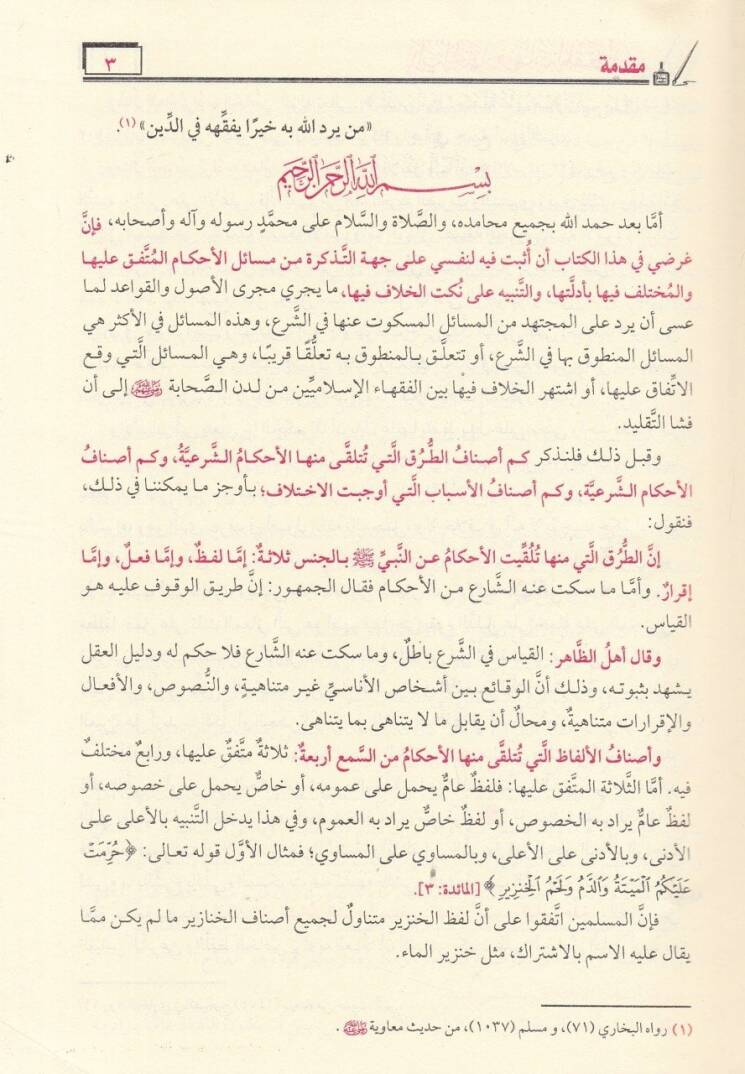 مقدمة
٣
«من يرد الله به خيرًا يفقِّهه في الدِّين»(١).
بِسْمِ ٱللَّهِ ٱلرَّحْمَٰنِ ٱلرَّحِيمِ
أمَّا بعد حمد الله بجميع محامده، والصَّلاة والسَّلام على محمَّدٍ رسوله وآله وأصحابه، فإنَّ
غرضي في هذا الكتاب أن أُثبت فيه لنفسي على جهة التَّذكرة من مسائل الأحكام المُتَّفق عليها
والمُختلف فيها بأدلَّتها، والتَّنبيه على نُكت الخلاف فيها، ما يجري مجرى الأصول والقواعد لما
عسى أن يرد على المجتهد من المسائل المسكوت عنها في الشَّرع، وهذه المسائل في الأكثر هي
المسائل المنطوق بها في الشَّرع، أو تتعلَّق بالمنطوق به تعلُّقًا قريبًا، وهي المسائل الَّتي وقع
الاتِّفاق عليها، أو اشتهر الخلاف فيها بين الفقهاء الإسلاميِّين من لدن الصَّحابة رضي الله عنهم إلى أن
فشا التَّقليد.
وقبل ذلك فلنذكر كم أصنافُ الطُّرق الَّتي تُتلقَّى منها الأحكامُ الشَّرعيَّةُ، وكم أصنافُ
الأحكام الشَّرعيَّة، وكم أصنافُ الأسباب الَّتي أوجبت الاختلاف؛ بأوجز ما يمكننا في ذلك،
فنقول:
إنَّ الطُّرق الَّتي منها تُلُقِّيت الأحكامُ عن النَّبيِّ ﷺ بالجنس ثلاثةٌ: إمَّا لفظٌ، وإمَّا فعلٌ، وإمَّا
إقرارٌ. وأمَّا ما سكت عنه الشَّارع من الأحكام فقال الجمهور: إنَّ طريق الوقوف عليه هو
القياس.
وقال أهلُ الظَّاهر: القياس في الشَّرع باطلٌ، وما سكت عنه الشَّارع فلا حكم له ودليل العقل
يشهد بثبوته، وذلك أنَّ الوقائع بين أشخاص الأناسيِّ غير متناهيةٍ، والنُّصوص، والأفعال
والإقرارات متناهيةٌ، ومحالٌ أن يقابل ما لا يتناهى بما يتناهى.
وأصنافُ الألفاظ الَّتي تُتلقَّى منها الأحكامُ من السَّمع أربعةٌ: ثلاثةٌ متَّفقٌ عليها، ورابعٌ مختلفٌ
فيه. أمَّا الثَّلاثة المتَّفق عليها: فلفظٌ عامٌّ يحمل على عمومه، أو خاصٌّ يحمل على خصوصه، أو
لفظٌ عامٌّ يراد به الخصوص، أو لفظٌ خاصٌّ يراد به العموم، وفي هذا يدخل التَّنبيه بالأعلى على
الأدنى، وبالأدنى على الأعلى، وبالمساوي على المساوي؛ فمثال الأوَّل قوله تعالى: ﴿حُرِّمَتۡ
عَلَيۡكُمُ ٱلۡمَيۡتَةُ وَٱلدَّمُ وَلَحۡمُ ٱلۡخِنزِيرِ﴾ [المائدة: ٣].
فإنَّ المسلمين اتَّفقوا على أنَّ لفظ الخنزير متناولٌ لجميع أصناف الخنازير ما لم يكن ممَّا
يقال عليه الاسم بالاشتراك، مثل خنزير الماء.
(١) رواه البخاري (٧١)، و مسلم (١٠٣٧)، من حديث معاوية رضي الله عنه.